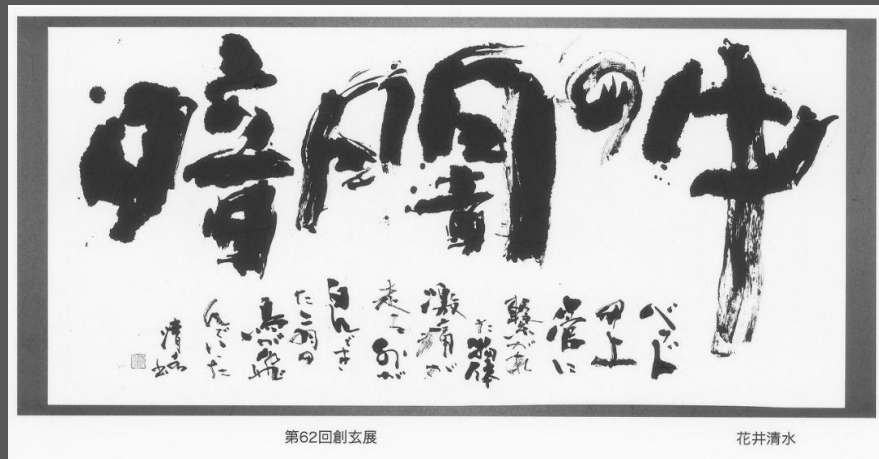 暗闇の中
ベッド
の上
管に
繋がれ
た物体
激痛が
走る 外が
白んでき
た二羽の
鳥が飛
んでいた
清水
第62回創玄展
花井清水